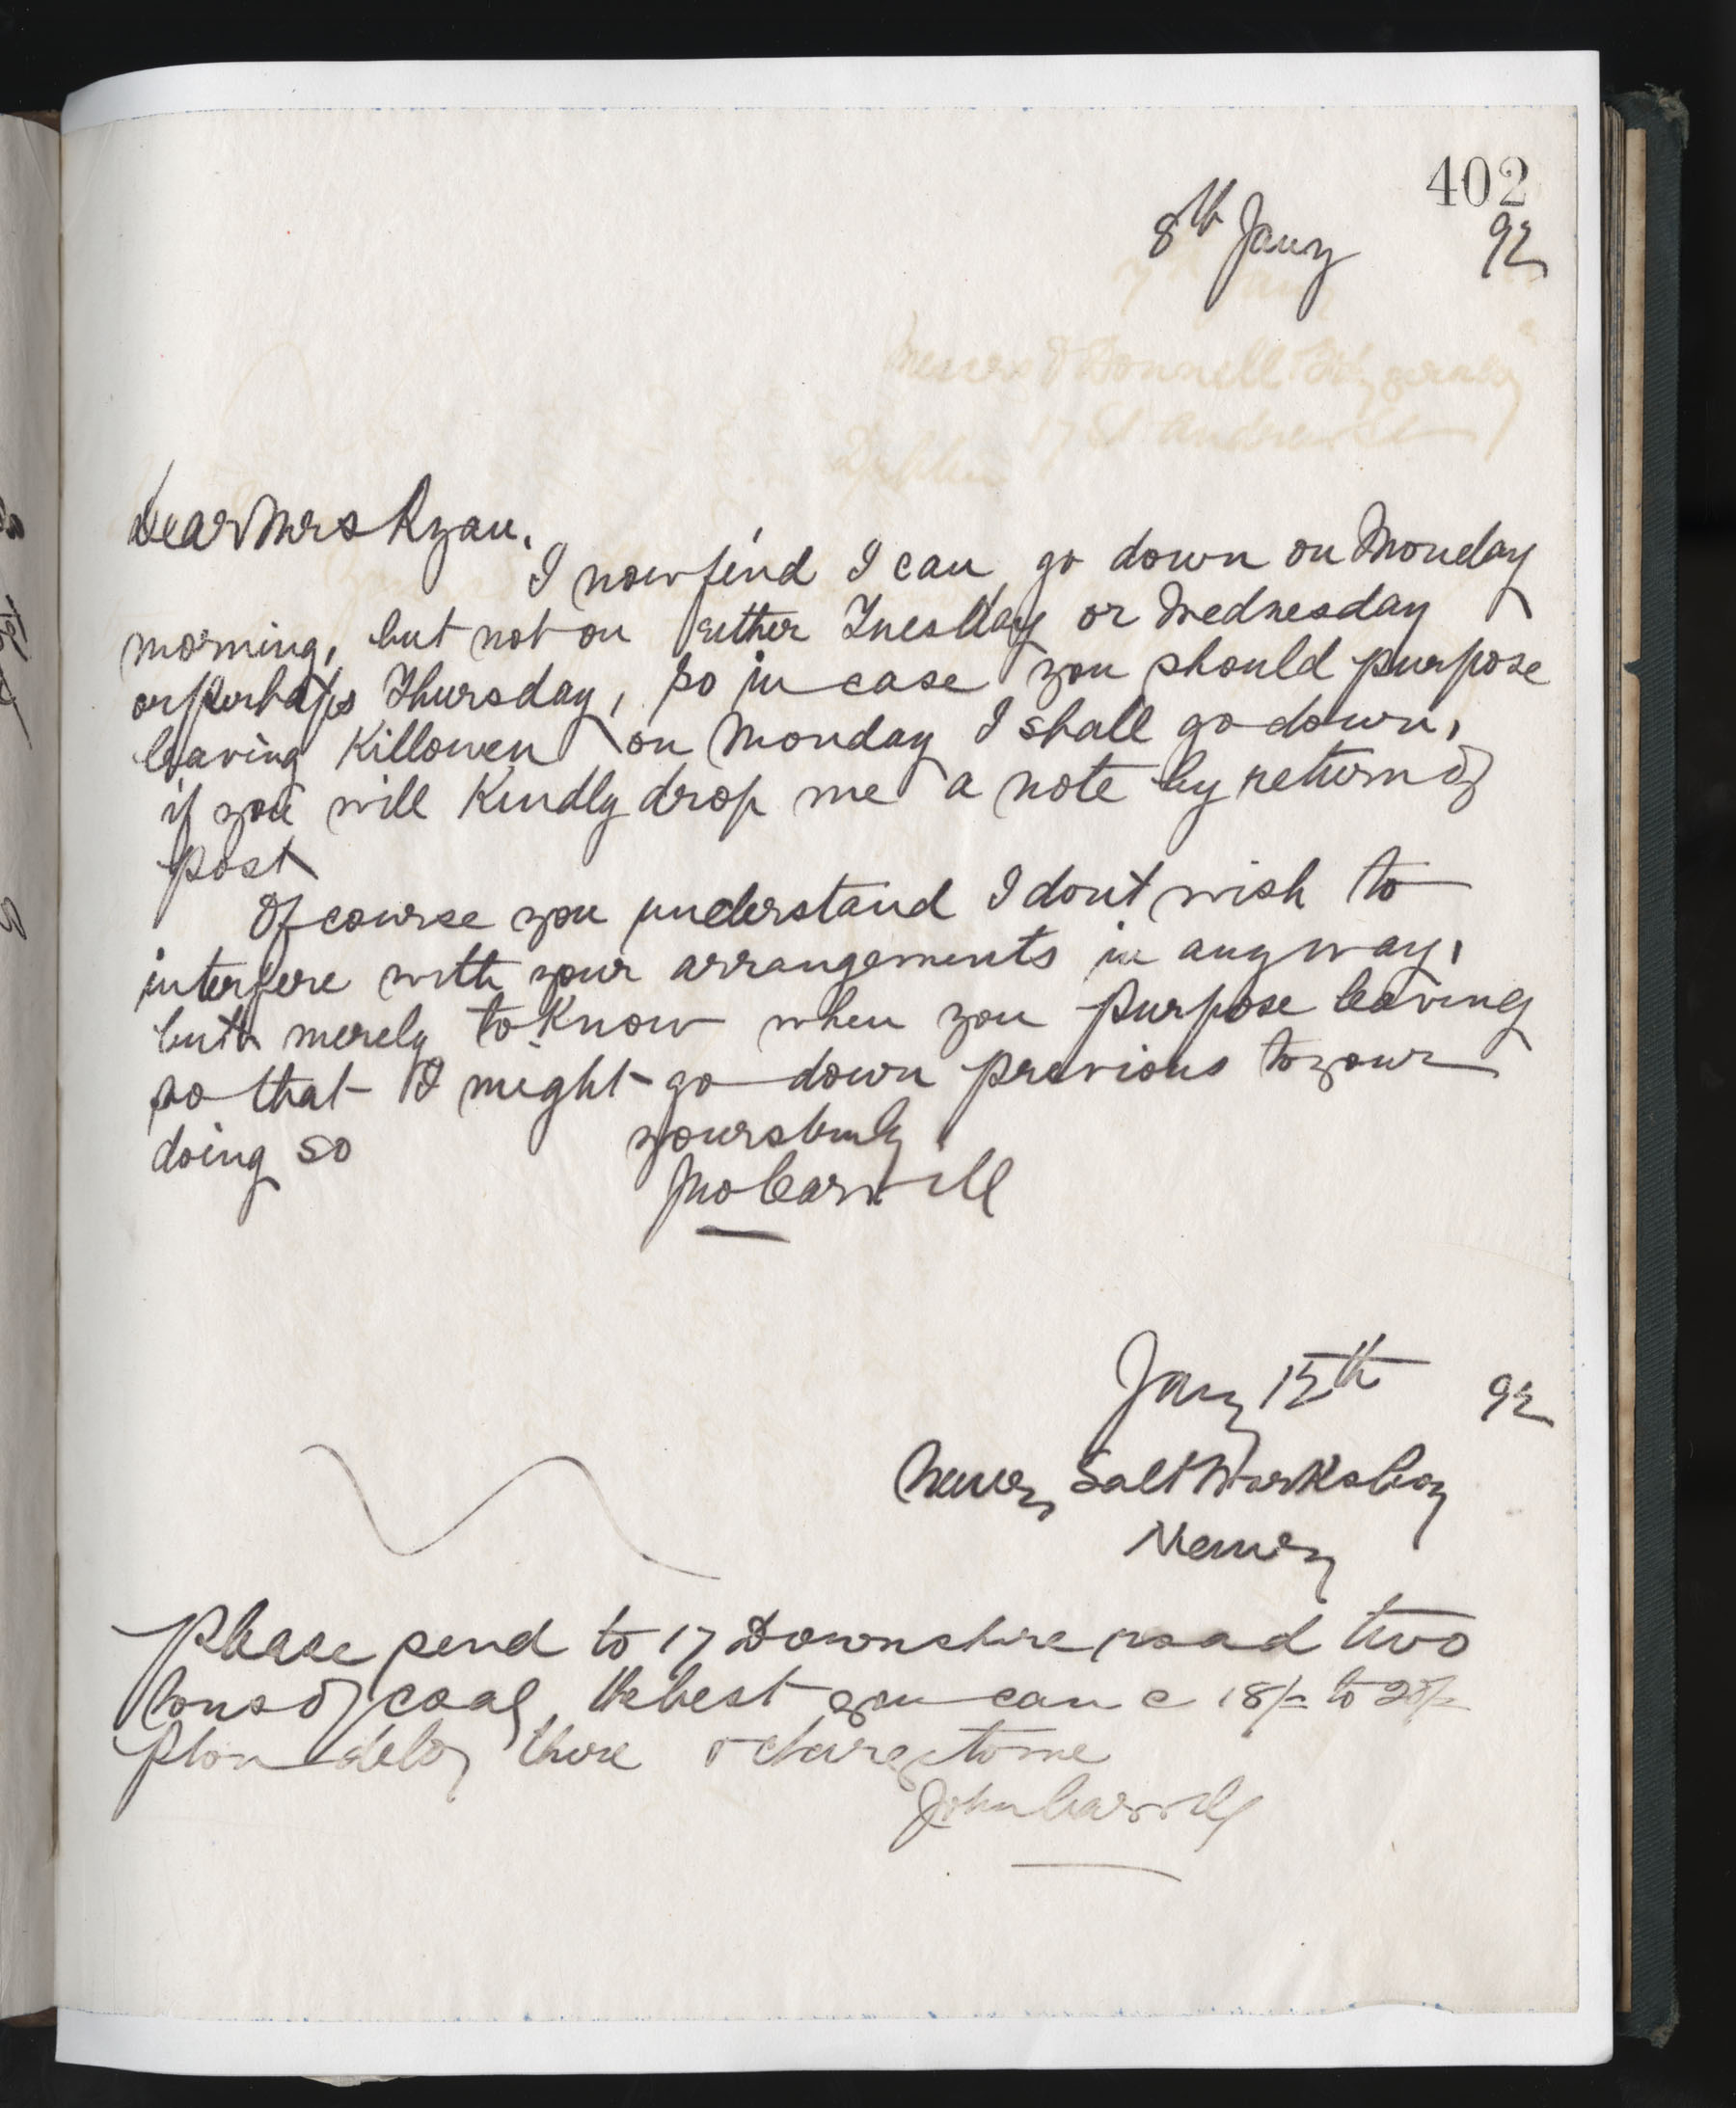 402
8th Jany 92
Dear Mrs Ryan.
I now find I can go down on Monday
morning, but not on either Tuesday or Wednesday
or perhaps Thursday, so in case you should purpose
leaving Killowen on Monday I shall go down,
if you will Kindly drop me a note by return of
post
Of course you understand I dont wish to
interfere with your arrangements in any way,
but merely to Know when you purpose leaving
so that I might go down previous to your
doing so
yours truly
Jno Carvill
Jany 12th 92
Newry Salt Works Coy
Newry
Please send to 17 Downshire road two
tons of coal, the best you can @ 18/= to 20/=
P ton dely there & charge to me
John Carvill